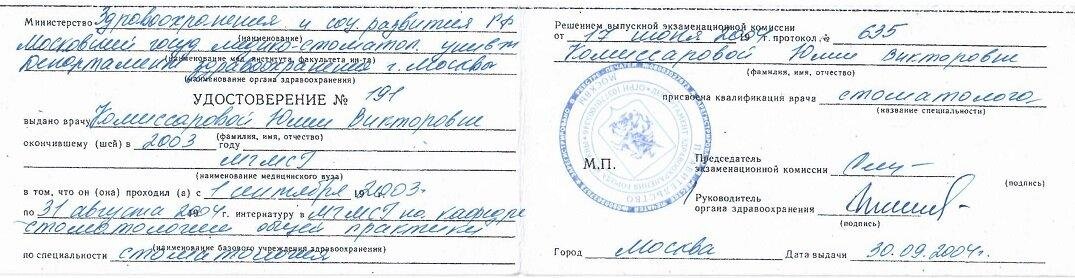 Министерство Здравоохранения и соц. развития РФ
(наименование)
Московский госуд. медико-стоматол. универ-т
(наименование мед. института, факультета ин-та)
Департамент здравоохранения г. Москва
(наименование органа здравоохранения)
УДОСТОВЕРЕНИЕ № 191
выдано врачу Комиссаровой Юлии Викторовне
(фамилия, имя, отчество)
окончившему (шей) в 2003 году
МГМСУ
(наименование медицинского вуза)
в том, что он (она) проходил (а) с 1 сентября 2003 г.
по 31 августа 2004 г. интернатуру в МГМСУ на кафедре
стоматологии общей практики
(наименование базового учреждения здравоохранения)
по специальности стоматология
Решением выпускной экзаменационной комиссии
от 17 июня 2004 г. протокол № 635
Комиссаровой Юлии Викторовне
(фамилия, имя, отчество)
присвоена квалификация врача стоматолога
(название специальности)
М.П.
Председатель
экзаменационной комиссии
(подпись)
Руководитель
органа здравоохранения
(подпись)
Город Москва Дата выдачи 30.09.2004г.